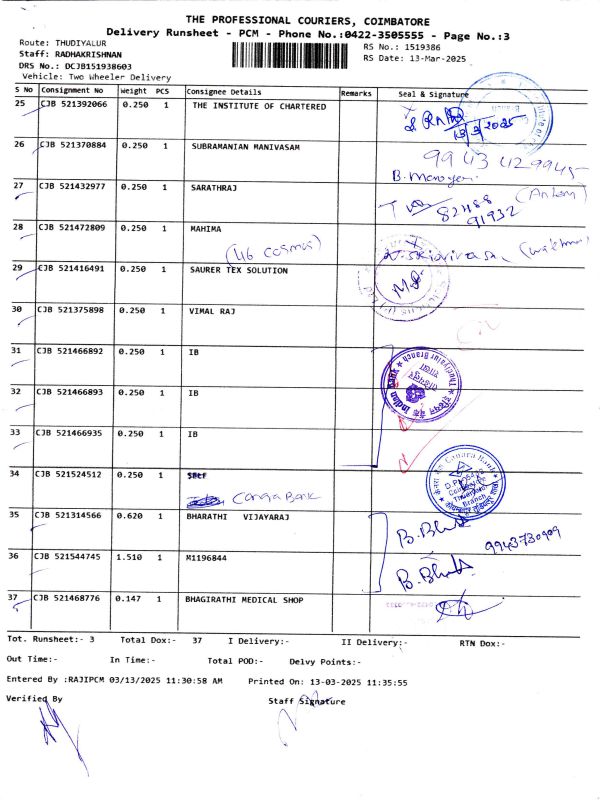 THE PROFESSIONAL COURIERS, COIMBATORE
Delivery Runsheet - PCM - Phone No.:0422-3505555 - Page No.:3
Route: THUDIYALUR
RS No.: 1519386
Staff: RADHAKRISHNAN
RS Date: 13-Mar-2025
DRS No.: DCJB151938603
Vehicle: Two Wheeler Delivery
S No Consignment No Weight PCS Consignee Details Remarks Seal & Signature
25 CJB 521392066 0.250 1 THE INSTITUTE OF CHARTERED
13/3/2025
26 CJB 521370884 0.250 1 SUBRAMANIAN MANIVASAM
9943429945
27 CJB 521432977 0.250 1 SARATHRAJ
82488
91932
28 CJB 521472809 0.250 1 MAHIMA
(46 cosmos)
29 CJB 521416491 0.250 1 SAURER TEX SOLUTION
30 CJB 521375898 0.250 1 VIMAL RAJ
31 CJB 521466892 0.250 1 IB
Thudiyalur Branch
Indian Bank
32 CJB 521466893 0.250 1 IB
33 CJB 521466935 0.250 1 IB
34 CJB 521524512 0.250 1 SELF
Canara Bank
Canara Bank
Coimbatore
Thudiyalur
Branch
35 CJB 521314566 0.620 1 BHARATHI VIJAYARAJ
9943730909
36 CJB 521544745 1.510 1 M1196844
37 CJB 521468776 0.147 1 BHAGIRATHI MEDICAL SHOP
Tot. Runsheet:- 3 Total Dox:- 37 I Delivery:- II Delivery:- RTN Dox:-
Out Time:- In Time:- Total POD:- Delvy Points:-
Entered By :RAJIPCM 03/13/2025 11:30:58 AM Printed On: 13-03-2025 11:35:55
Verified By Staff Signature